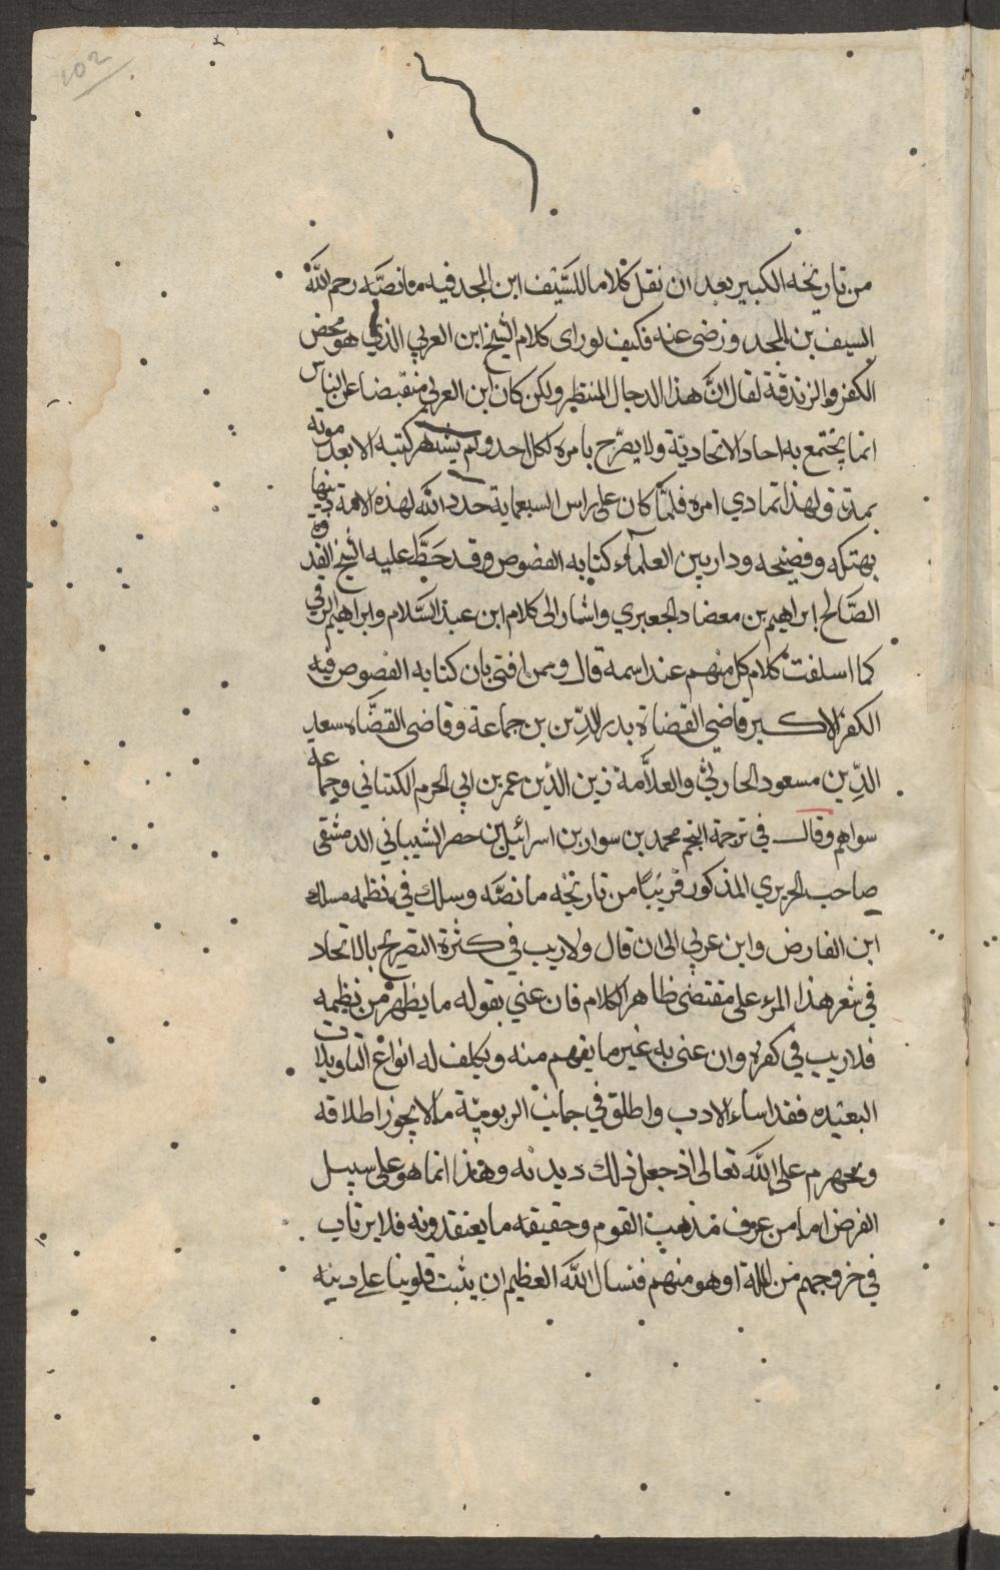 102
من تاريخه الكبير بعد ان نقل كلاما للسيف ابن المجد فيه ما نصّه رحم اللّه
السيف بن المجد ورضى عنه فكيف لو راى كلام الشيخ ابن العربي الذي هو محض
الكفر والزندقة لقال انّ هذا الدجال المنتظر ولكن كان ابن العربي منقبضا عن الناس
انما يجتمع به احاد الاتحاديّة ولا يصرّح بامره لكل احد ولم يشتهر كتبه الا بعد موته
بمدة ولهذا تمادي امره فلمّا كان على راس السبعماية جدد اللّه لهذه الامة دينها
بهتكه وفضيحه ودار بين العلمآء كتابه الفصوص وقد حَطَّ عليه الشيخ القدوه
الصَّالح ابراهيم بن معضاد الجعبري واشار الى كلام ابن عبد السَّلام وابراهيم الرقي
كما اسلفت كلام كل منهم عند اسمه قال وممن افتى بان كتابه الفصوص فيه
الكفر الاكبر قاضي القضاة بدر الدِّين بن جماعة وقاضى القضَاه سعد
الدِّين مسعود الحارثي والعلاَّمة زين الدّين عمر بن ابي الحرم الكتناني وجماعة
سواهم وقال في ترجمة النجم محمد بن سوار بن اسرائيل بن حصر الشيباني الدمشقى
صاحب الحريري المذكور قريبًا من تاريخه ما نصّه وسلك في نظمه مسلك
ابن الفارض وابن عربي الى ان قال ولا ريب في كثرة التصريح بالاتحاد
في شعر هذا المرء على مقتضى ظاهر الكلام فان عني بقوله ما يظهر من نظمه
فلا ريب في كفره وان عنى به غير ما يفهم منه ويكلف له انواع التاويلات
البعيده فقد اساء الادب واطلق في جانب الربوبيّة ما لا يجوز اطلاقه
وتجهرم على اللّه تعالى اذ جعل ذلك ديدنه وهذا انما هو على سبيل
الفرض اما من عرف مذهب القوم وحقيقه ما يعتقدونه فلا يرتاب
في خروجهم من الملة او هو منهم فنسال اللّه العظيم ان يثبت قلوبنا على دينه